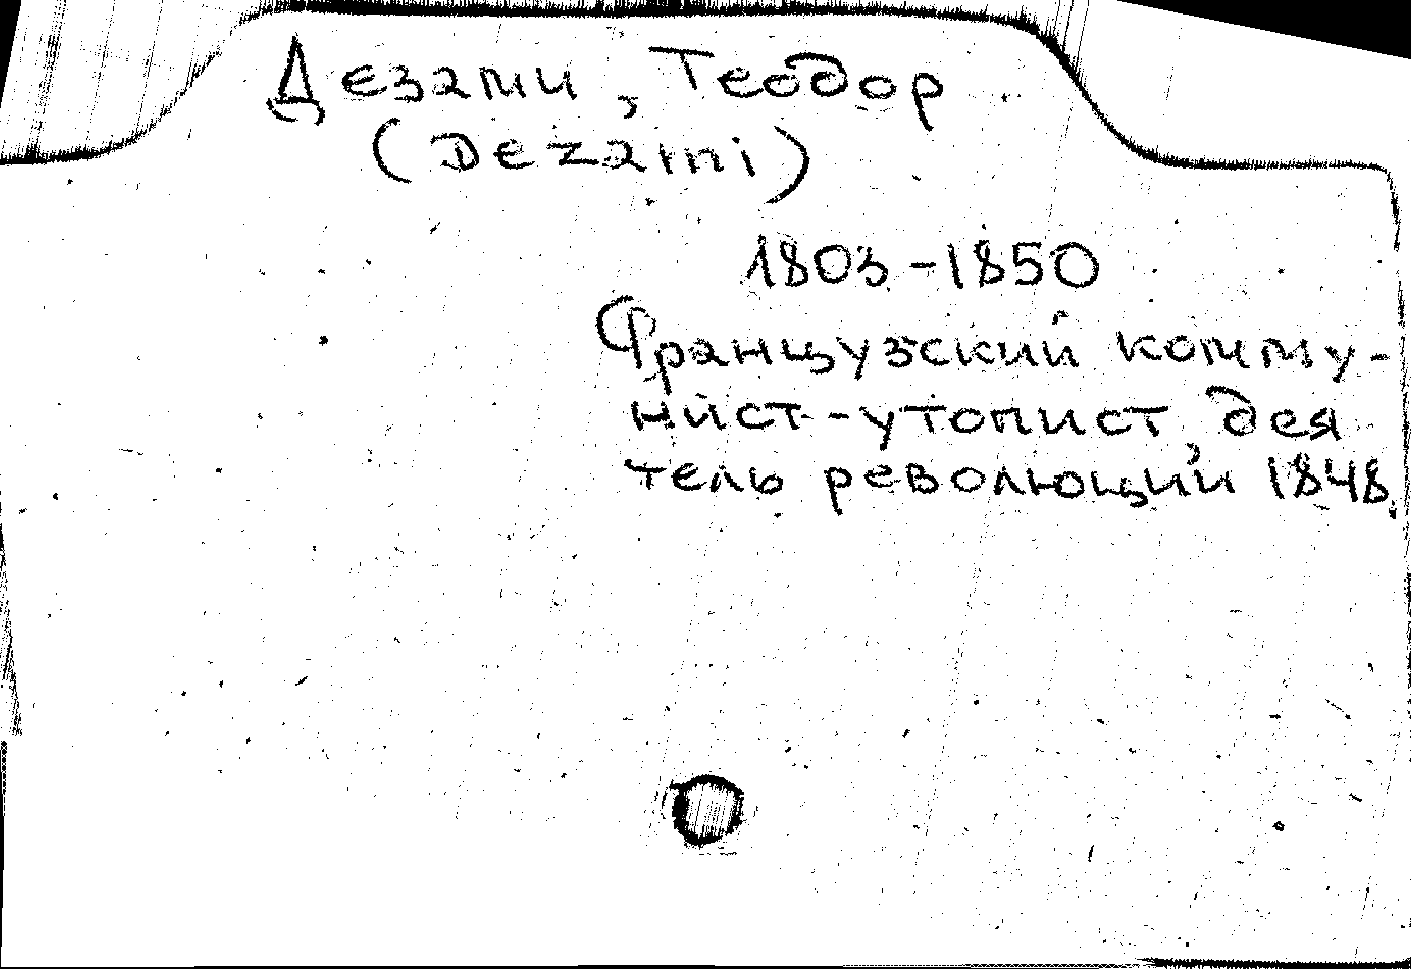 Дезами, Теодор
(Dezami)
1803-1850
Французский комму-
нист-утопист, дея
тель революции 1848.